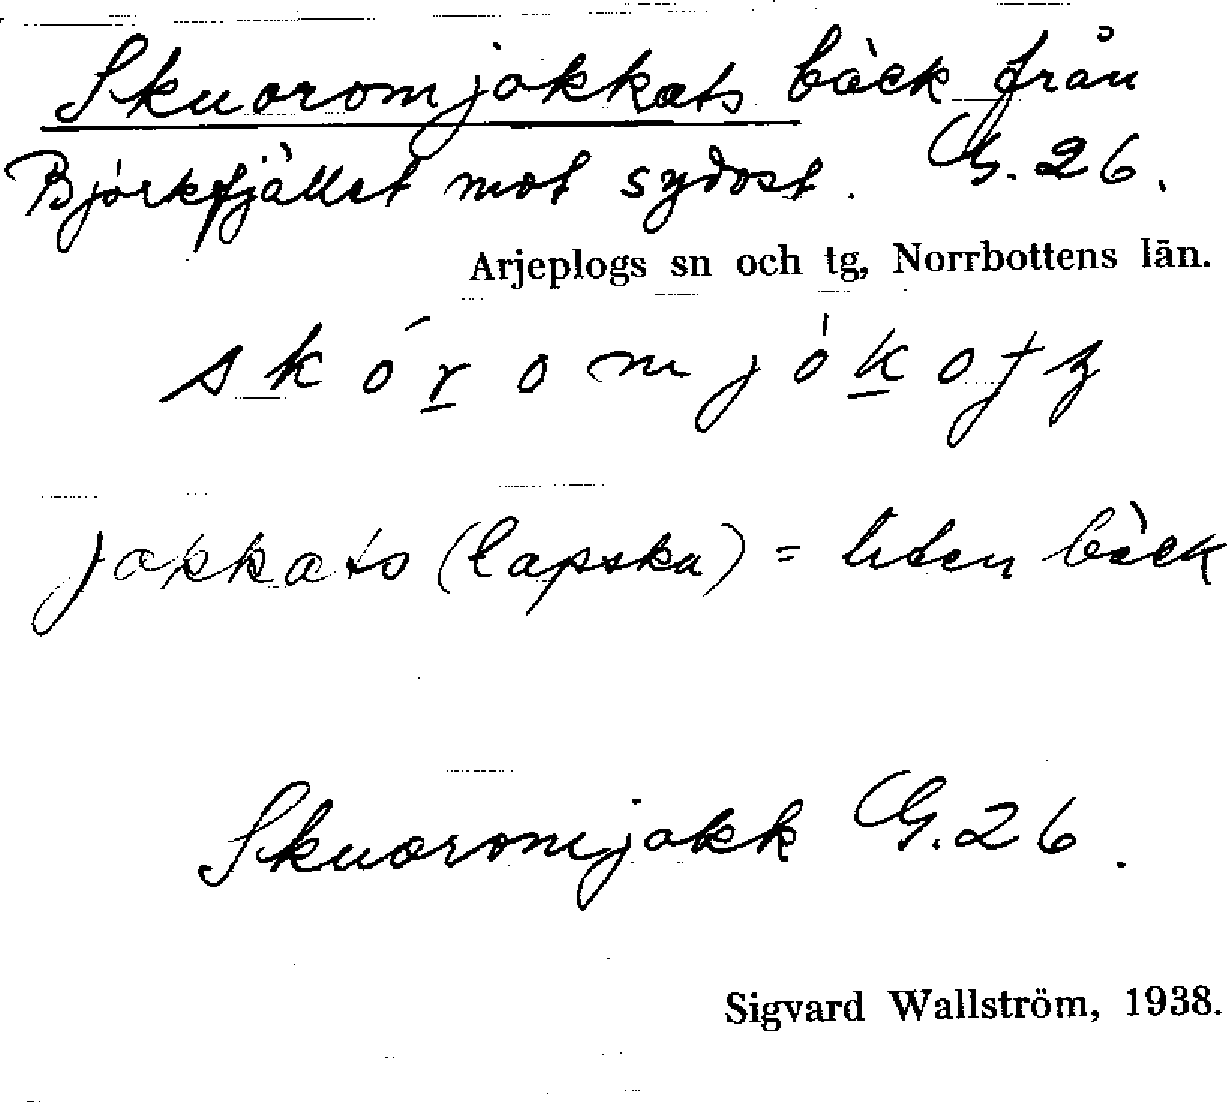 Skuoromjokkats bäck från
Björkfjället mot sydost. G. 26.
Arjeplogs sn och tg, Norrbottens län.
jokkats (lapska) = liten bäck
Skuoromjokk G. 26.
Sigvard Wallström, 1938.